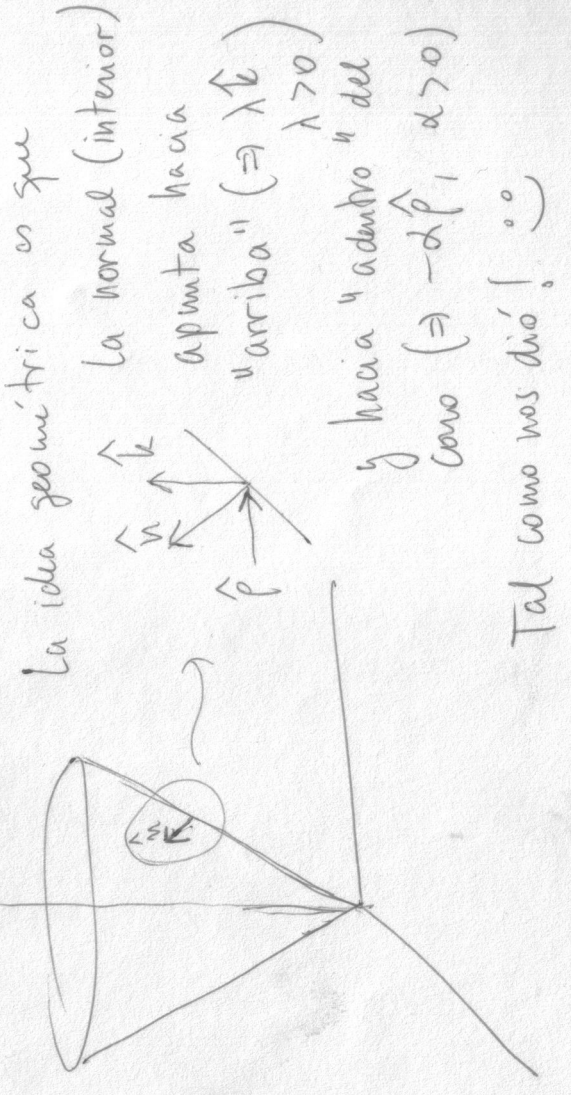 La idea geométrica es que
la normal (interior)
apunta hacia
"arriba" (⇒ λk̂
λ>0)
y hacia "adentro" del
cono (⇒ -αρ̂, α>0)
Tal como nos dió! :)
k̂
n̂
ρ̂
n̂